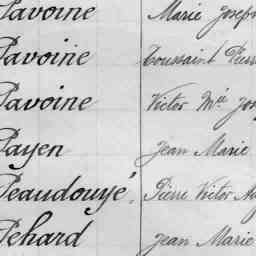 Pavoine Marie Joseph
Pavoine Toussaint Pierre
Pavoine Victor Mie Jos
Payen Jean Marie
Peaudouyé, Pierre Victor Au
Pehard Jean Marie